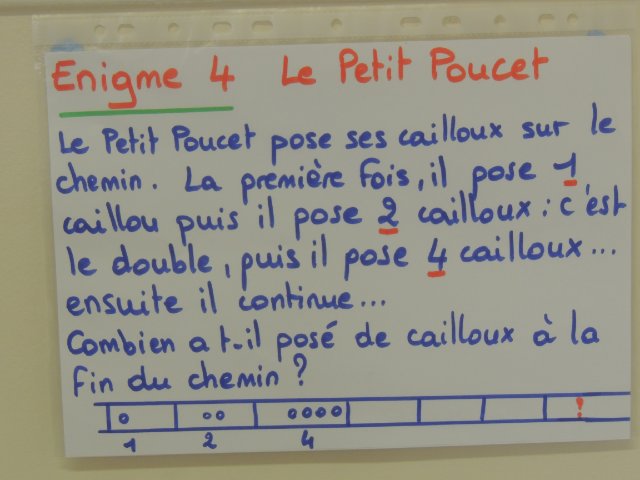 Enigme 4 Le Petit Poucet
Le Petit Poucet pose ses cailloux sur le
chemin. La première fois, il pose 1
caillou puis il pose 2 cailloux : c'est
le double, puis il pose 4 cailloux...
ensuite il continue...
Combien a t-il posé de cailloux à la
fin du chemin ?
!
1 2 4